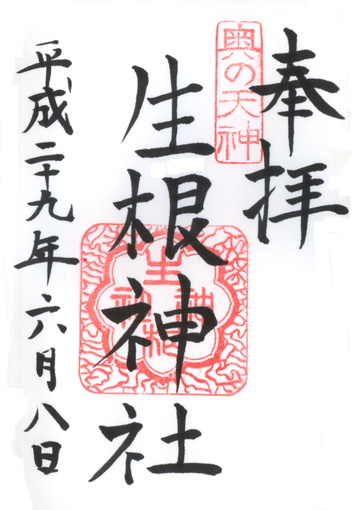 奉拝
奥の天神
生根神社
生根神社
平成二十九年六月八日